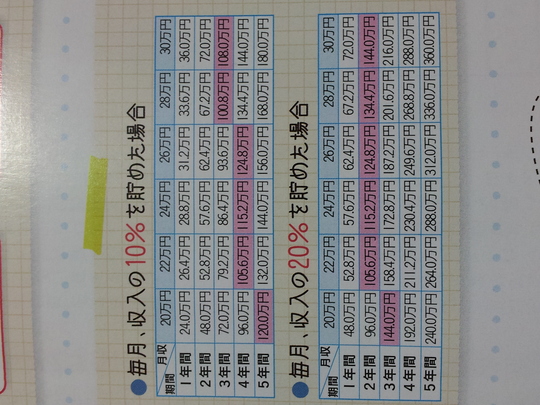 ●毎月、収入の10%を貯めた場合
期間 月収 20万円 22万円 24万円 26万円 28万円 30万円
1年間 24.0万円 26.4万円 28.8万円 31.2万円 33.6万円 36.0万円
2年間 48.0万円 52.8万円 57.6万円 62.4万円 67.2万円 72.0万円
3年間 72.0万円 79.2万円 86.4万円 93.6万円 100.8万円 108.0万円
4年間 96.0万円 105.6万円 115.2万円 124.8万円 134.4万円 144.0万円
5年間 120.0万円 132.0万円 144.0万円 156.0万円 168.0万円 180.0万円
●毎月、収入の20%を貯めた場合
期間 月収 20万円 22万円 24万円 26万円 28万円 30万円
1年間 48.0万円 52.8万円 57.6万円 62.4万円 67.2万円 72.0万円
2年間 96.0万円 105.6万円 115.2万円 124.8万円 134.4万円 144.0万円
3年間 144.0万円 158.4万円 172.8万円 187.2万円 201.6万円 216.0万円
4年間 192.0万円 211.2万円 230.4万円 249.6万円 268.8万円 288.0万円
5年間 240.0万円 264.0万円 288.0万円 312.0万円 336.0万円 360.0万円